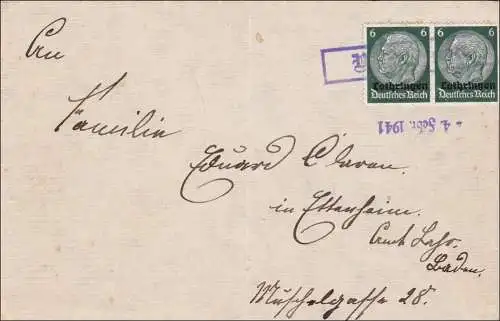 6 6
6 6
Lothringen Lothringen
Deutsches Reich Deutsches Reich
- 4. Febr. 1941
An
Familie
Eduard
in Ettenheim.
Amt Lahr.
Baden.
Muschelgasse 28.